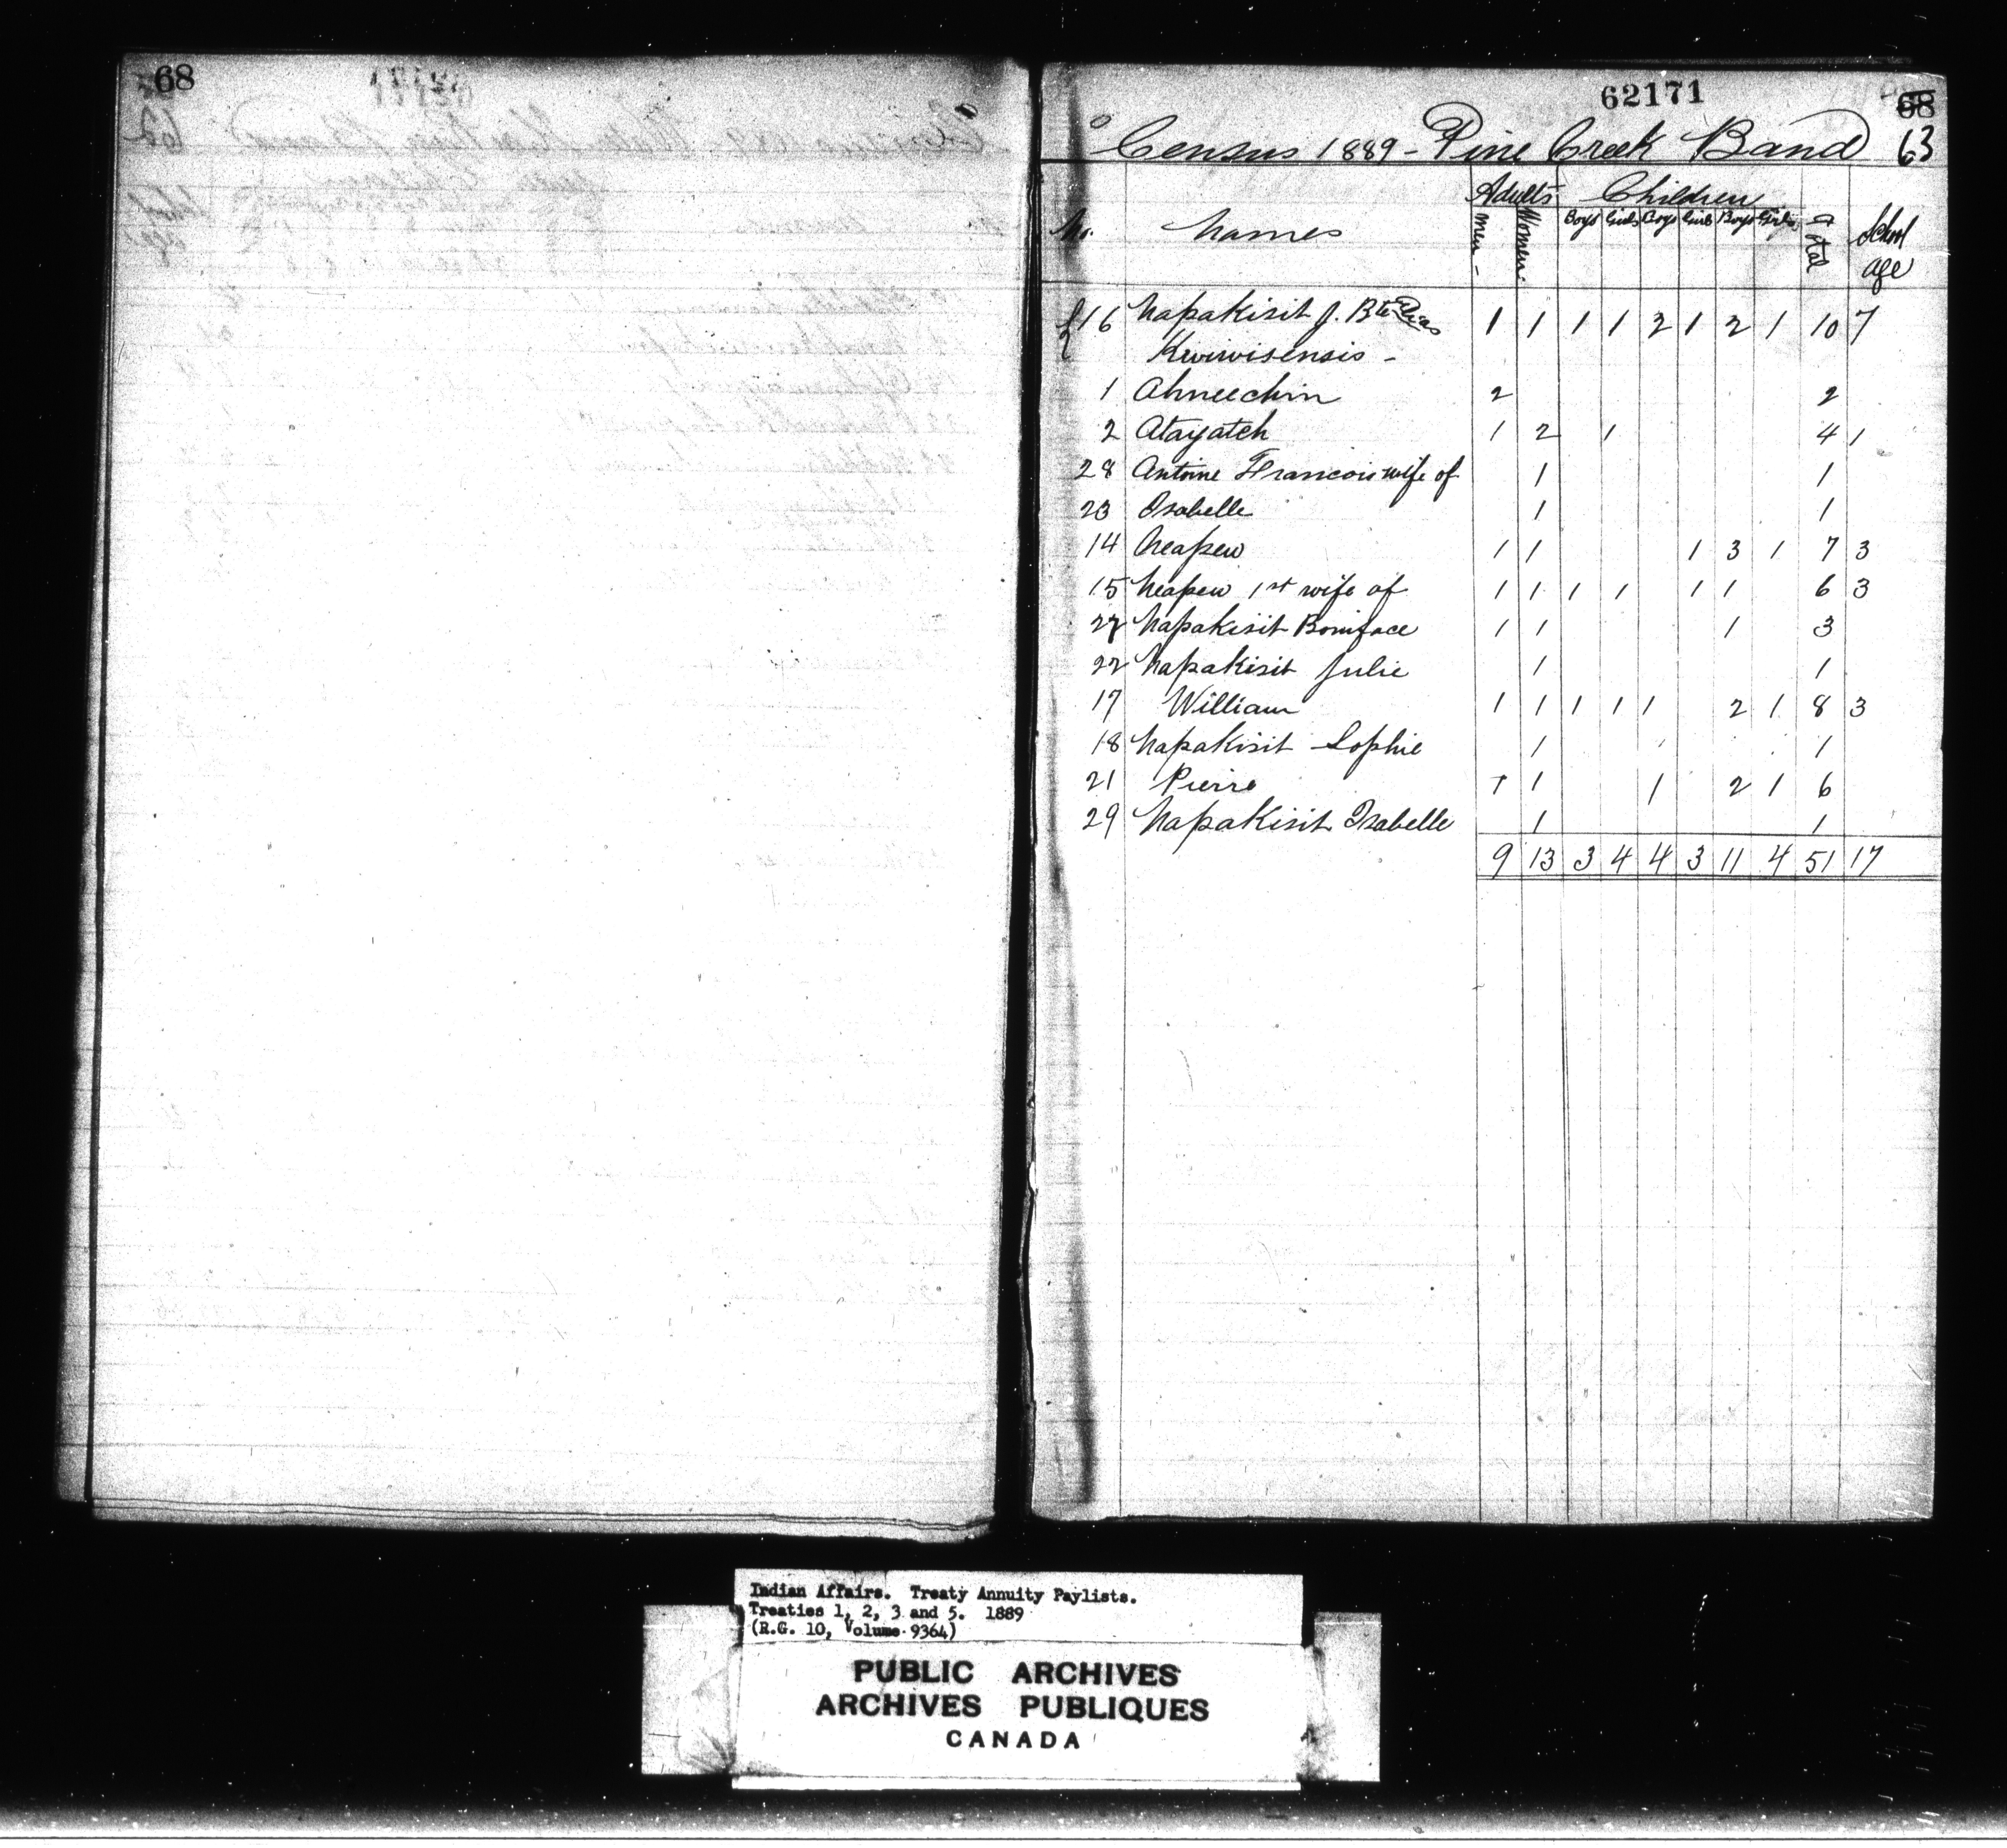 68
62171
68
Census 1889 - Pine Creek Band 63
Adults Children
No. Names Men Women Boys Girls Boys Girls Boys Girls Total School age
16 Napakisit J. Bte Elias 1 1 1 1 2 1 2 1 10 7
Kwiwisensis -
1 Ahneechin 2 2
2 Atayatch 1 2 1 4 1
28 Antoine Francois wife of 1 1
23 Isabelle 1 1
14 Neapew 1 1 1 3 1 7 3
15 Neapew 1st wife of 1 1 1 1 1 1 6 3
27 Napakisit Boniface 1 1 1 3
22 Napakisit Julie 1 1
17 William 1 1 1 1 1 2 1 8 3
18 Napakisit Sophie 1 1
21 Pierre 1 1 1 2 1 6
29 Napakisit Isabelle 1 1
9 13 3 4 4 3 11 4 51 17
Indian Affairs. Treaty Annuity Paylists.
Treaties 1, 2, 3 and 5. 1889
(R.G. 10, Volume 9364)
PUBLIC ARCHIVES
ARCHIVES PUBLIQUES
CANADA